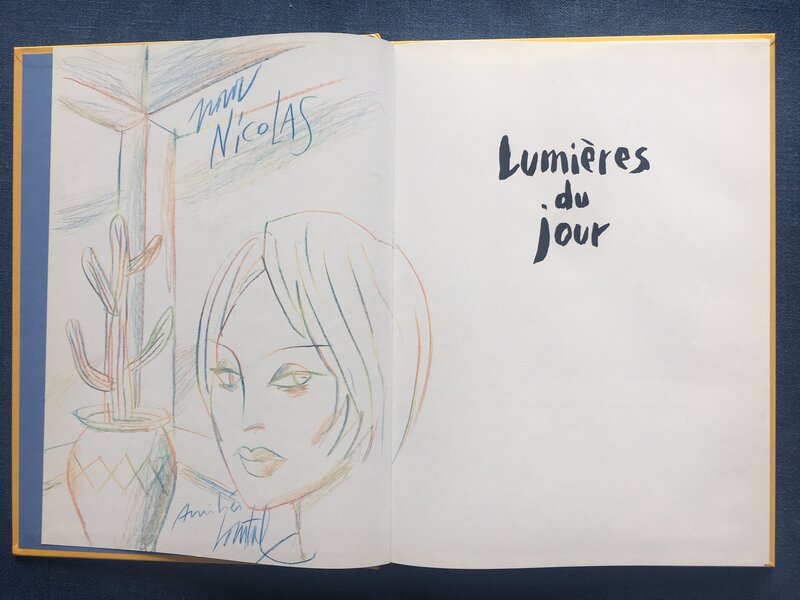 pour
NicoLAS
Amitiés
Loustal
Lumières
du
jour